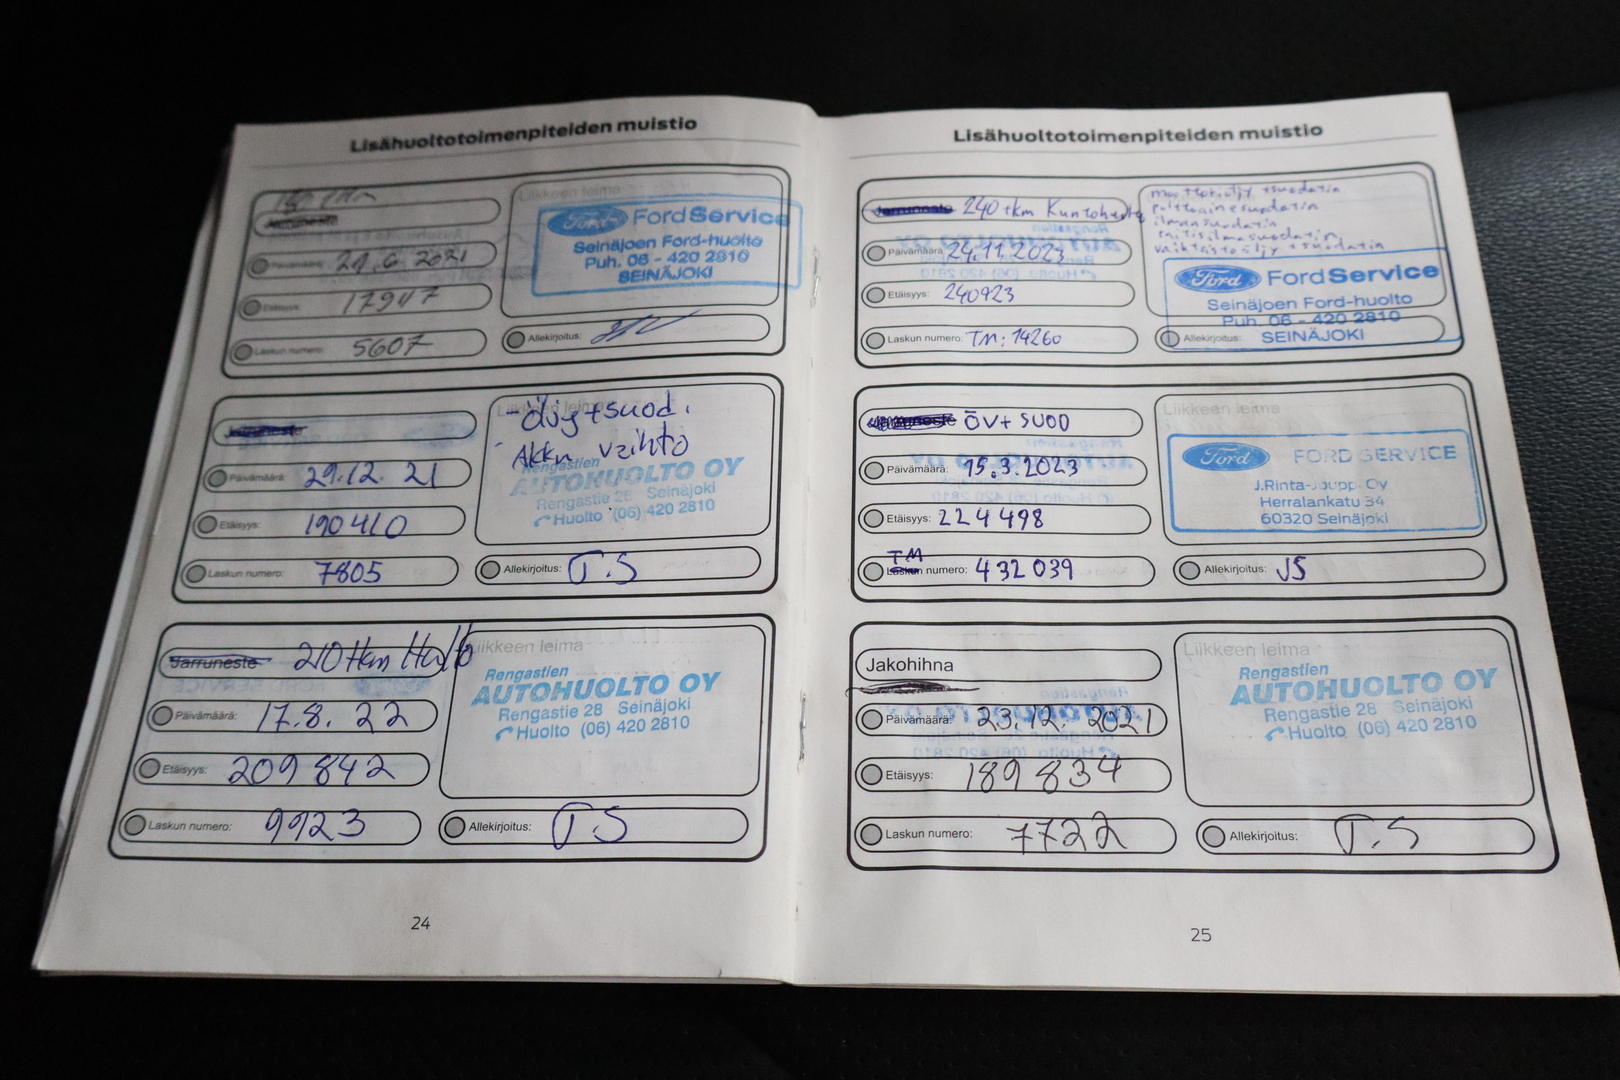 Lisähuoltotoimenpiteiden muistio
Jarruneste
Liikkeen leima
Ford FordService
Seinäjoen Ford-huolto
Puh. 06 - 420 2810
SEINÄJOKI
Päivämäärä: 21.6 2021
Etäisyys: 17947
Laskun numero: 5607
Allekirjoitus:
Jarruneste
Liikkeen leima
- Öljy+suod.
- Akku vaihto
Rengastien
AUTOHUOLTO OY
Rengastie 28 Seinäjoki
Huolto (06) 420 2810
Päivämäärä: 29.12. 21
Etäisyys: 190410
Laskun numero: 7805
Allekirjoitus: T.S
Jarruneste 210tkm Huolto
Liikkeen leima
Rengastien
AUTOHUOLTO OY
Rengastie 28 Seinäjoki
Huolto (06) 420 2810
Päivämäärä: 17.8. 22
Etäisyys: 209842
Laskun numero: 9923
Allekirjoitus: T S
24
Lisähuoltotoimenpiteiden muistio
Jarruneste 240 tkm Kuntohuolto
moottoriöljy + suodatin
polttoainesuodatin
ilmansuodatin
raitisilmasuodatin,
vaihteistoöljy + suodatin
Ford FordService
Seinäjoen Ford-huolto
Puh. 06 - 420 2810
SEINÄJOKI
Päivämäärä: 24.11.2023
Etäisyys: 240923
Laskun numero: TM: 14260
Allekirjoitus:
Jarruneste ÖV+ SUOD
Liikkeen leima
Ford FORD SERVICE
J.Rinta-Jouppi Oy
Herralankatu 34
60320 Seinäjoki
Päivämäärä: 15.3.2023
Etäisyys: 224498
TM
Laskun numero: 432039
Allekirjoitus: JS
Jakohihna
Liikkeen leima
Rengastien
AUTOHUOLTO OY
Rengastie 28 Seinäjoki
Huolto (06) 420 2810
Päivämäärä: 23.12. 2021
Etäisyys: 189834
Laskun numero: 7722
Allekirjoitus: T.S
25